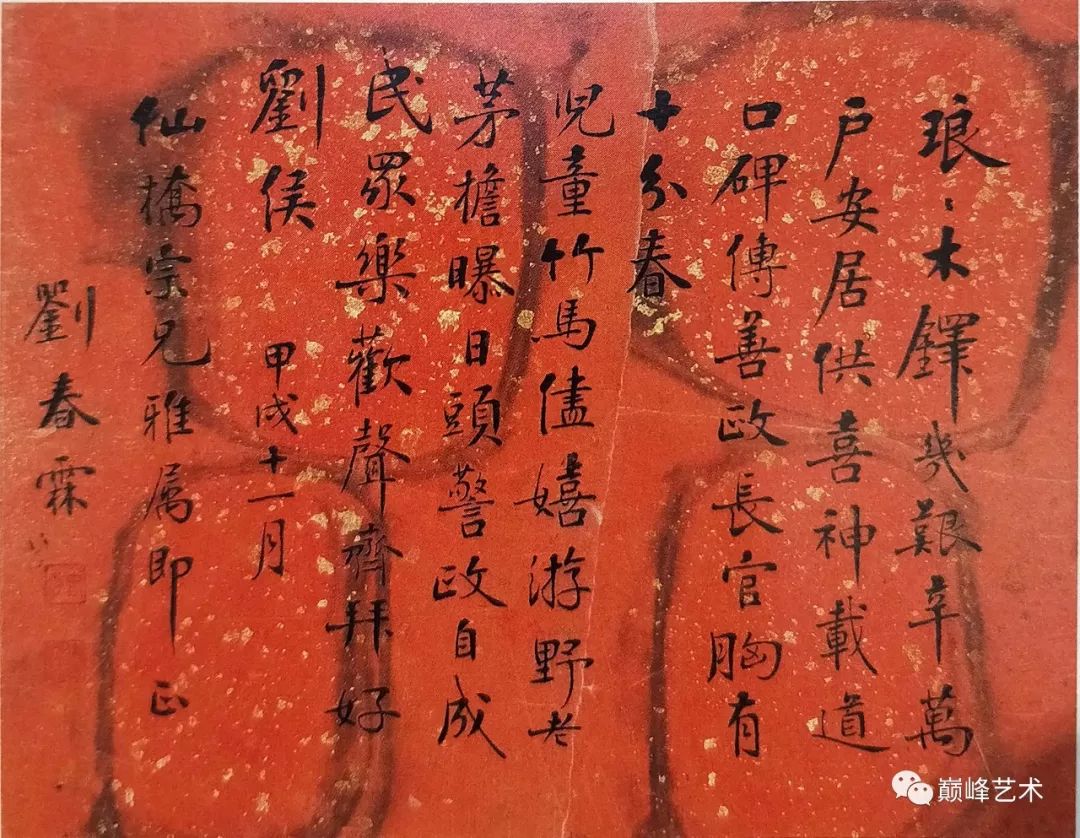 琅〻木鐸幾艱辛萬
戶安居供喜神載道
口碑傳善政長官胸有
十分春
兒童竹馬儘嬉游野老
茅檐曝日頭警政自成
民眾樂歡聲齊拜好
劉侯
甲戌十一月
仙橋宗兄雅属即正
劉春霖
巅峰艺术